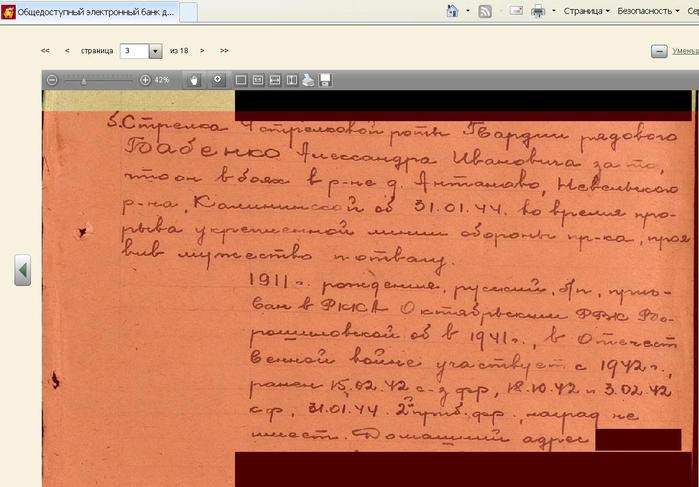 Общедоступный электронный банк д...
Страница
Безопасность
Сер
<< < страница 3 из 18 > >>
Умень
42%
5. Стрелка 4 стрелковой роты Гвардии рядового
Бабенко Александра Ивановича за то,
что он в боях в р-не д. Антаново, Невельского
р-на, Калининской об 31.01.44. во время про-
рыва укрепленной линии обороны пр-ка, проя
вив мужество и отвагу.
1911 г. рождения, русский, б/п, приз-
ван в РККА Октябрьским РВК Во-
рошиловской об в 1941 г., в Отечест
венной войне участвует с 1942 г.,
ранен 15.02.42 с-з фр, 18.10.42 и 3.02.42
фр, 31.01.44. 2 приб. фр., наград не
имеет. Домашний адрес